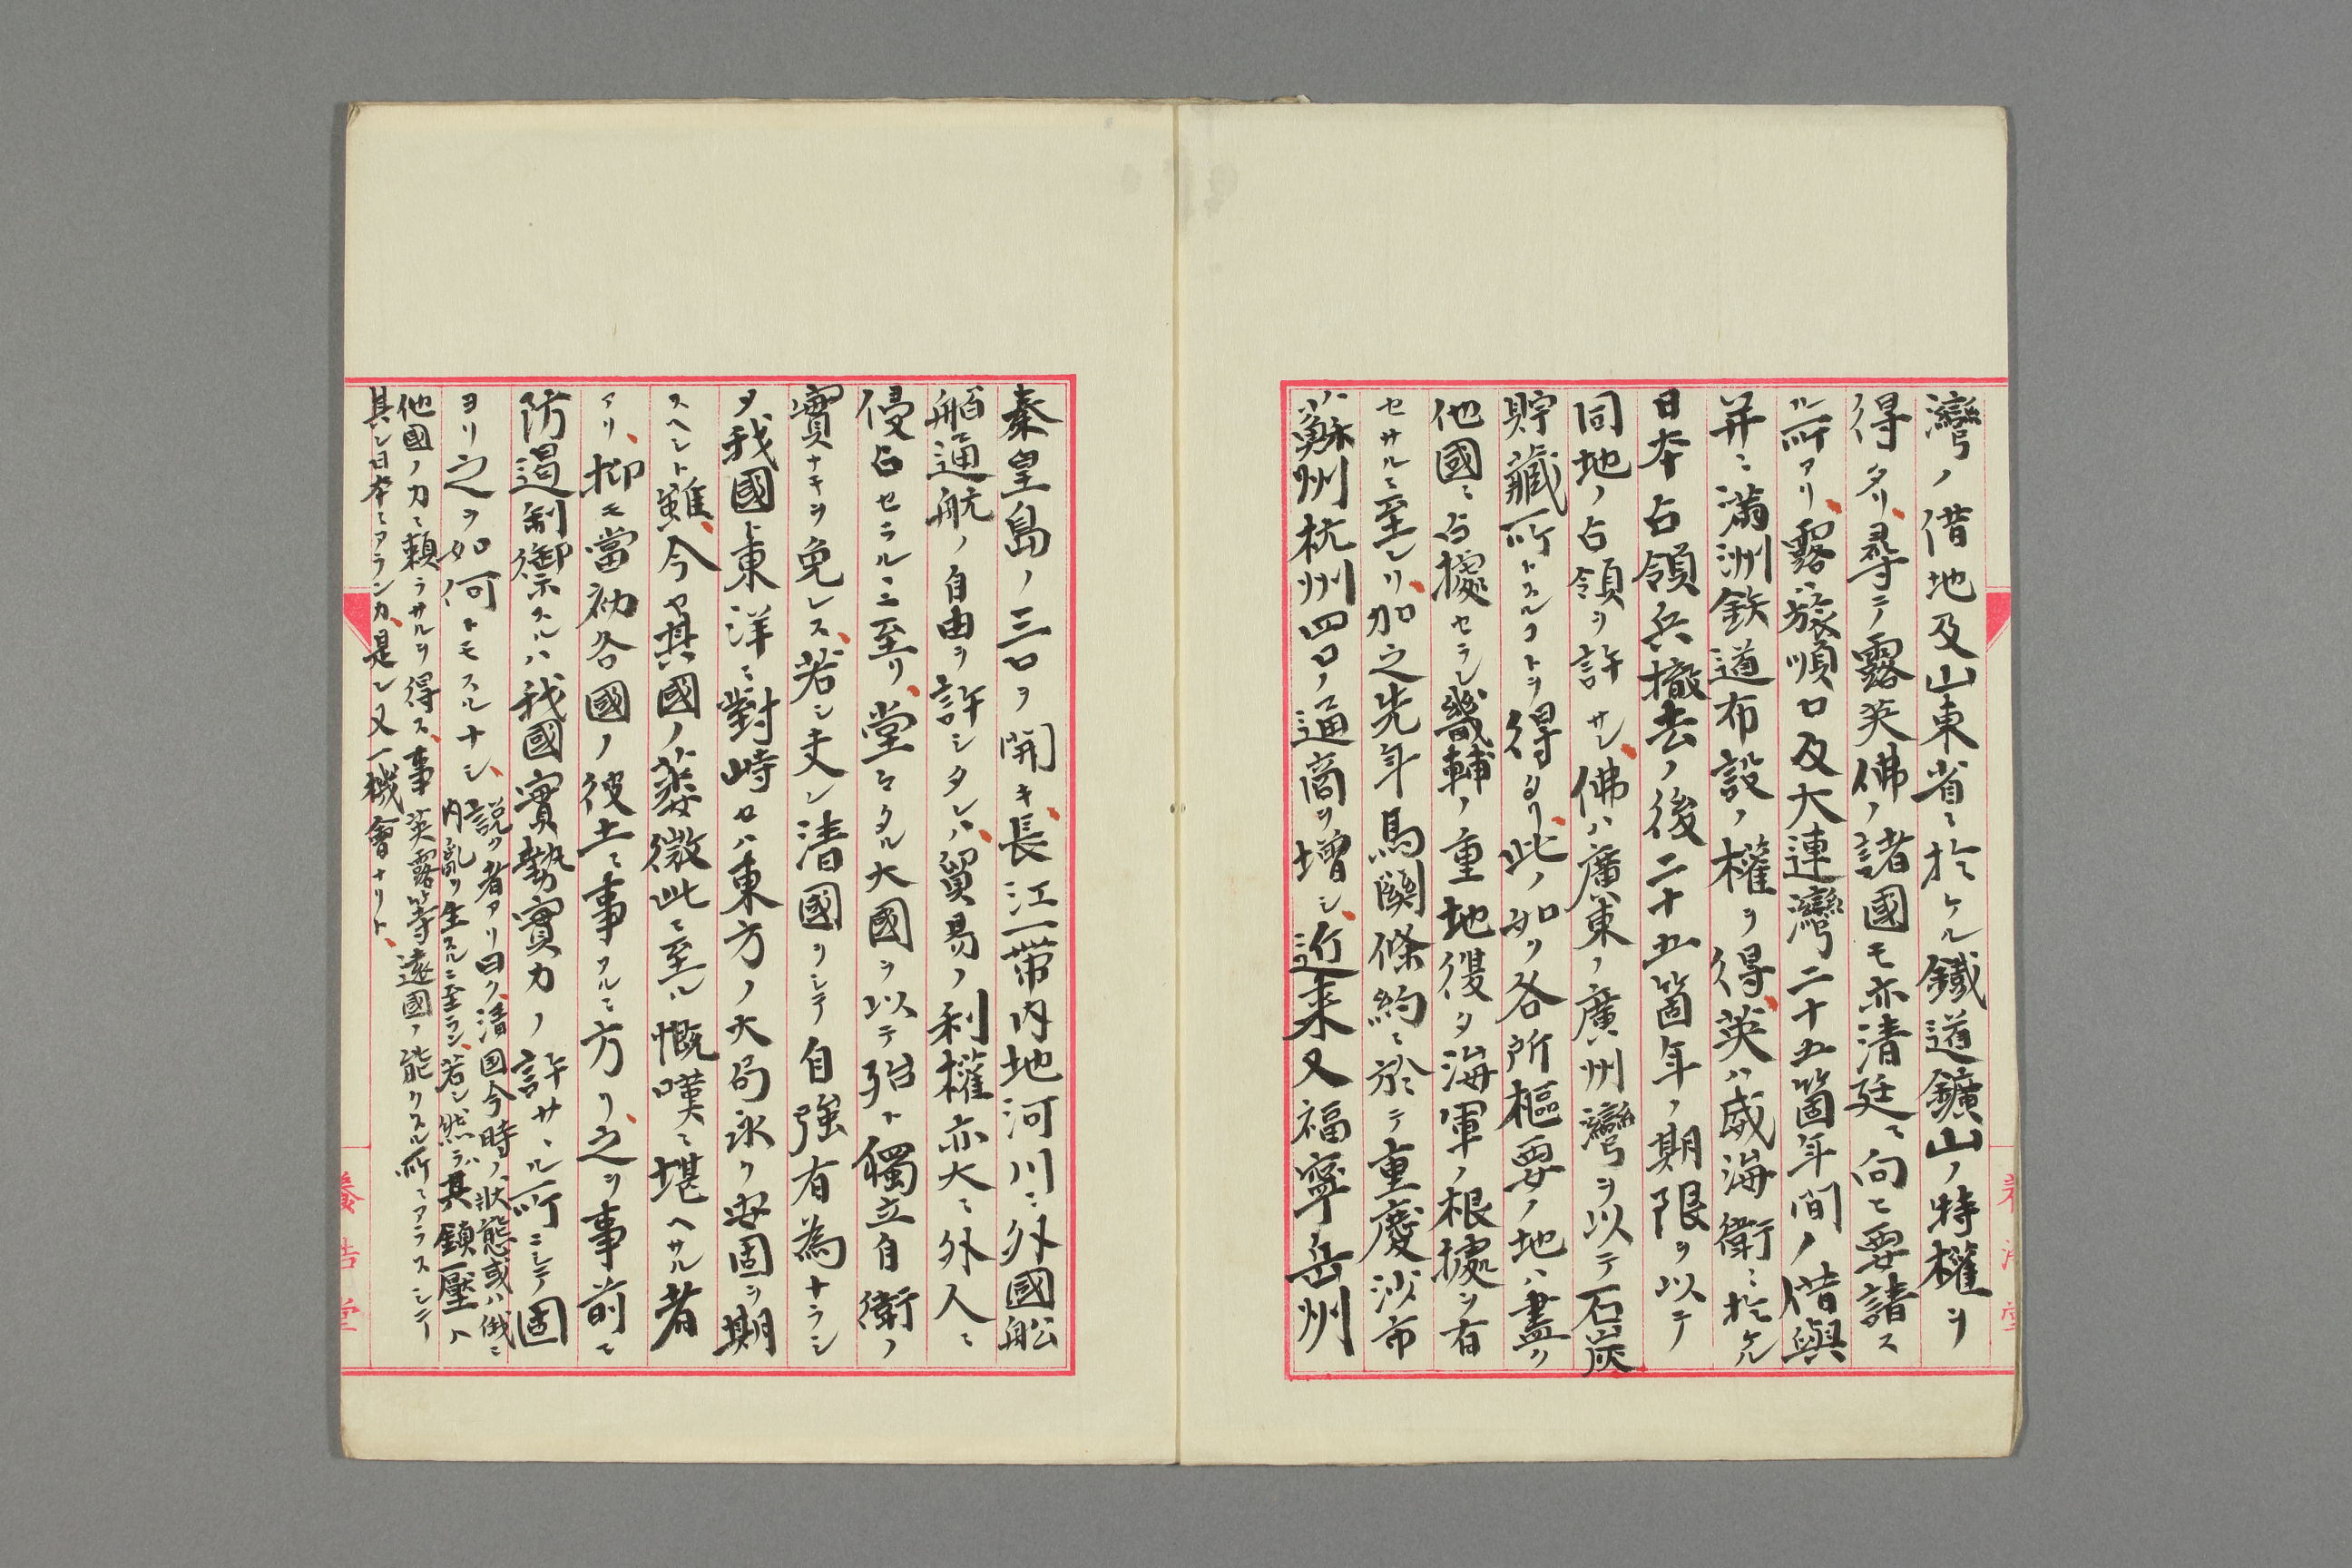 灣ノ借地及山東省ニ於ケル鐵道鑛山ノ特權ヲ
得タリ、尋テ露英佛ノ諸國モ亦清廷ニ向ヒ要請ス
ル所アリ、露ハ旅順口及大連灣二十五箇年間ノ借與
并ニ満洲鉄道布設ノ權ヲ得、英ハ威海衛ニ於ケル
日本占領兵撤去ノ後二十五箇年ノ期限ヲ以テ
同地ノ占領ヲ許サレ、佛ハ廣東ノ廣州灣ヲ以テ石炭
貯藏所トスルヿトヲ得タリ、此ノ如ク各所樞要ノ地ハ盡ク
他國ニ占據セラレ畿輔ノ重地復タ海軍ノ根據ヲ有
セサルニ至レリ、加之先年馬關條約ニ於テ重慶沙市
蘇州杭州四口ノ通商ヲ増シ、近来又福寧岳州
秦皇島ノ三口ヲ開キ、長江一帯内地河川ニ外國舩
舶通航ノ自由ヲ許シタレハ、貿易ノ利權亦大ニ外人ニ
侵占セラルニ至リ、堂々タル大國ヲ以テ殆ト獨立自衛ノ
實ナキヲ免レス、若シ夫レ清國ヲシテ自強有為ナラシ
メ我國ト東洋ニ對峙セハ東方ノ大局永ク安固ヲ期
スヘシト雖、今ヤ其國ノ萎微此ニ至ル慨嘆ニ堪ヘサル者
アリ、抑モ當初各國ノ彼土ニ事アルニ方リ、之ヲ事前ニ
防遏制御スルハ我國實勢實力ノ許サヽル所ニシテ固
ヨリ之ヲ如何トモスルナシ、
説ク者アリ曰ク、清国今時ノ状態或ハ俄ニ
内亂ヲ生スルニ至ラン、若シ然ラハ其鎮壓ハ
他國ノ力ニ頼ラサルヲ得ス、事英露等遠國ノ能クスル所ニアラスシテ
其レ日本ニアランカ、是レ又一機會ナリト、